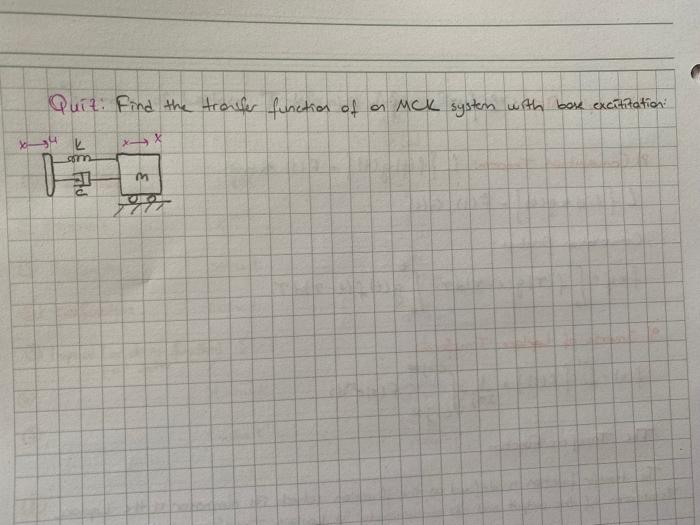 Quiz: Find the transfer function of an MCK system with base excititation:
u
k
x
m
c